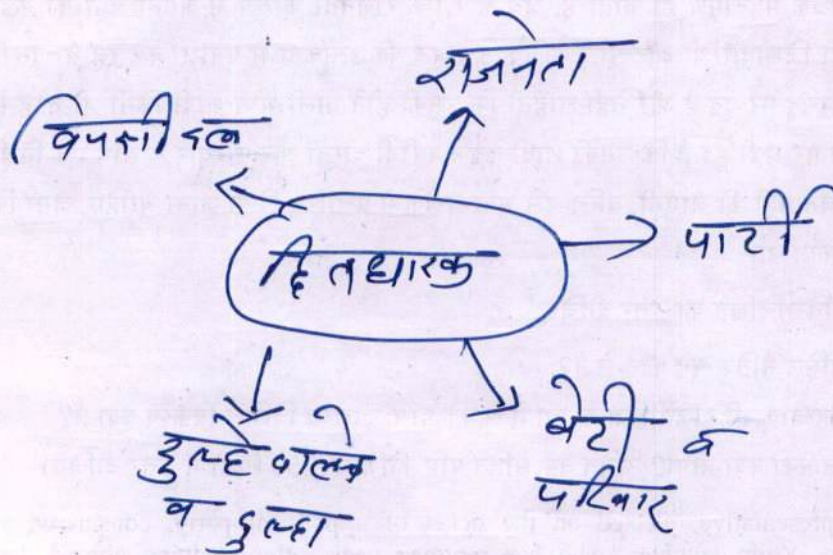 राजनेता
विपक्षी दल
हितधारक
पार्टी
बेटी व
परिवार
व दुल्हा